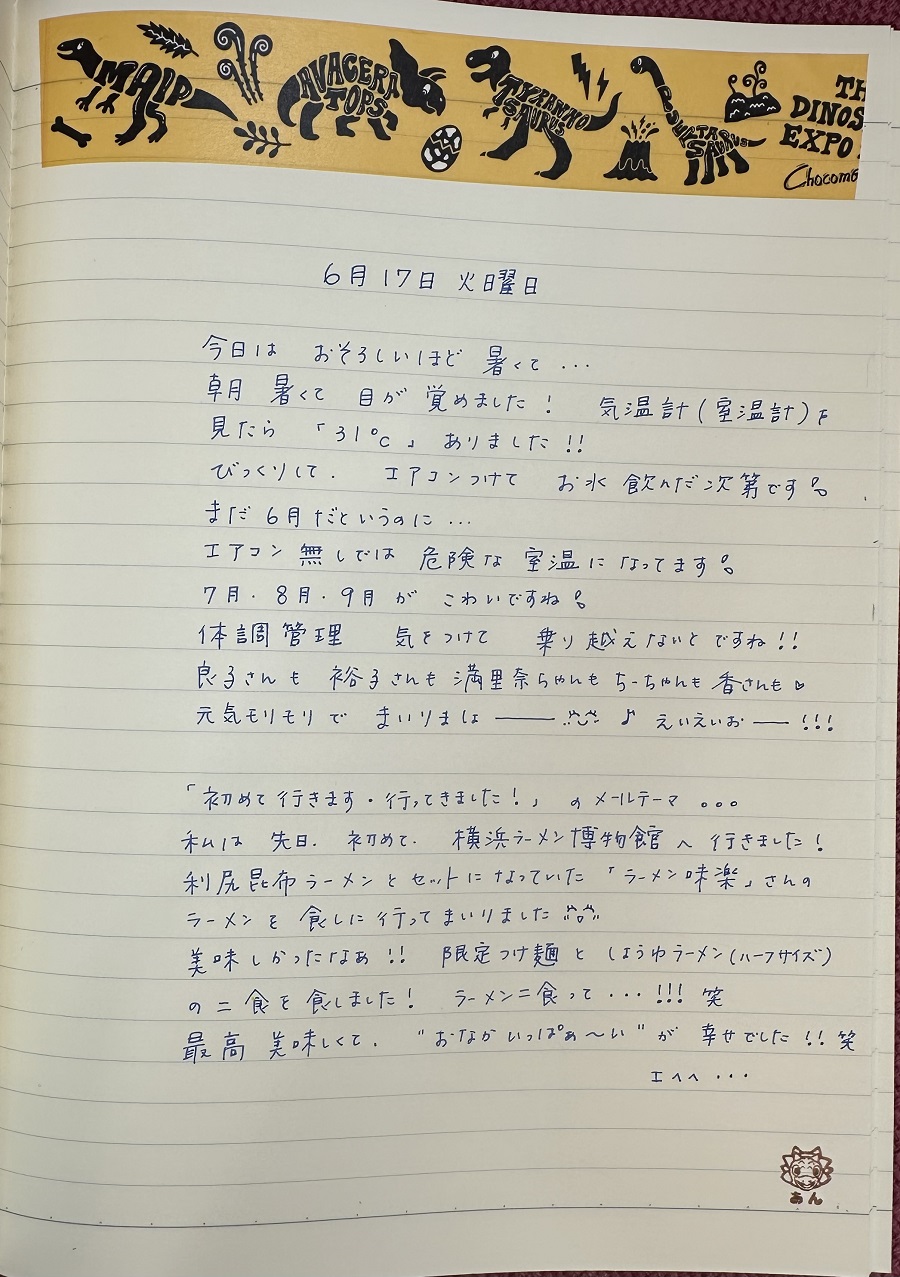 MAIP
AVACERATOPS
TYRANNOTSAURUS
THE
DINOS
EXPO
Chocomo
6月17日 火曜日
今日は おそろしいほど 暑くて ...
朝 暑くて 目が 覚めました! 気温計(室温計)を
見たら 「31℃」 ありました!!
びっくりして. エアコンつけて お水 飲んだ次第です。
まだ 6月だというのに ...
エアコン 無しでは 危険な 室温に なってます。
7月・8月・9月 が こわいですね。
体調管理 気をつけて 乗り越えないと ですね!!
良子さんも 裕子さんも 満里奈ちゃんも ちーちゃんも 香さんも♡
元気モリモリで まいりまし―― ♪ えいえいおー !!!
「初めて行きます・行ってきました!」 のメールテーマ 。。。
私は 先日. 初めて. 横浜ラーメン博物館 へ 行きました!
利尻昆布ラーメンと セットになっていた 「ラーメン味楽」さんの
ラーメンを 食しに行って まいりました
美味しかったなぁ!! 限定つけ麺 と しょうゆラーメン(ハーフサイズ)
の二食を食しました! ラーメン二食って ...!!! 笑
最高 美味しくて. "おなかいっぱぁ~い" が 幸せでした!! 笑
エヘヘ ...
あん